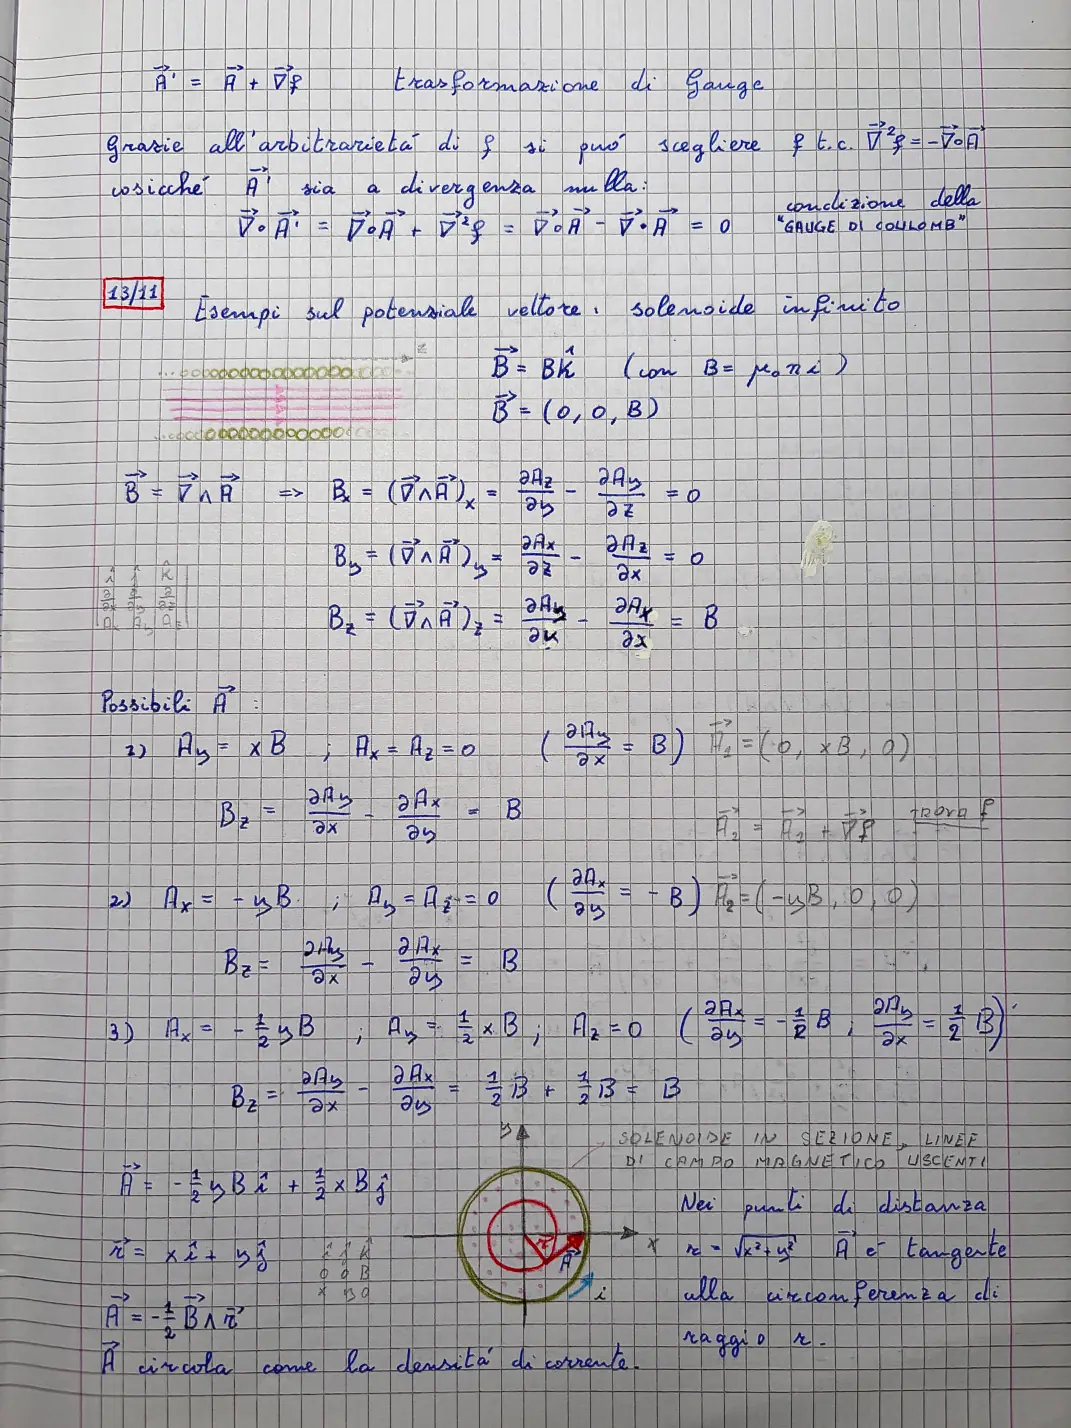 A⃗' = A⃗ + ∇⃗f trasformazione di Gauge
Grazie all'arbitrarietá di f si puó scegliere f t.c. ∇⃗²f = -∇⃗∘A⃗
cosicché A⃗' sia a divergenza nulla:
∇⃗∘A⃗' = ∇⃗∘A⃗ + ∇⃗²f = ∇⃗∘A⃗ - ∇⃗•A⃗ = 0
condizione della
"GAUGE DI COULOMB"
13/11
Esempi sul potenziale vettore. solenoide infinito
z
B⃗ = Bk̂ (con B = μ₀ n i)
B⃗ = (0, 0, B)
B⃗ = ∇⃗∧A⃗ => Bx = (∇⃗∧A⃗)x = ∂Az/∂y - ∂Ay/∂z = 0
By = (∇⃗∧A⃗)y = ∂Ax/∂z - ∂Az/∂x = 0
î ĵ k̂
∂/∂x ∂/∂y ∂/∂z
Ax Ay Az
Bz = (∇⃗∧A⃗)z = ∂Ay/∂x - ∂Ax/∂x = B
Possibili A⃗ :
1) Ay = xB ; Ax = Az = 0 (∂Ay/∂x = B) A⃗₁ = (0, xB, 0)
Bz = ∂Ay/∂x - ∂Ax/∂y = B
A⃗₂ = A⃗₂ + ∇⃗f trova f
2) Ax = -yB ; Ay = Az = 0 (∂Ax/∂y = -B) A⃗₂ = (-yB, 0, 0)
Bz = ∂Ay/∂x - ∂Ax/∂y = B
3) Ax = -1/2 yB ; Ay = 1/2 xB ; Az = 0 (∂Ax/∂y = -1/2 B ; ∂Ay/∂x = 1/2 B)
Bz = ∂Ay/∂x - ∂Ax/∂y = 1/2 B + 1/2 B = B
SOLENOIDE IN SEZIONE, LINEE
DI CAMPO MAGNETICO USCENTI
A⃗ = -1/2 yB î + 1/2 xB ĵ
r⃗ = x î + y ĵ
î ĵ k̂
0 0 B
x y 0
A⃗ = -1/2 B⃗∧r⃗
A⃗ circola come la densitá di corrente.
y
x
r⃗
A⃗
i
Nei punti di distanza
r = √x²+y² A⃗ é tangente
alla circonferenza di
raggio r.